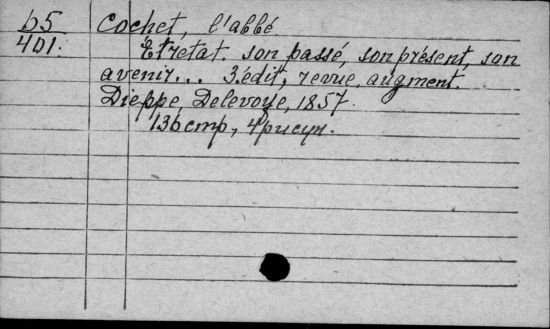 b5 Cochet, l'abbé
401. Étretat. son passé, son présent, son
avenir... 3.édit, revue, augment.
Dieppe, Delevoye, 1857.
136 стр, 4 рисун.